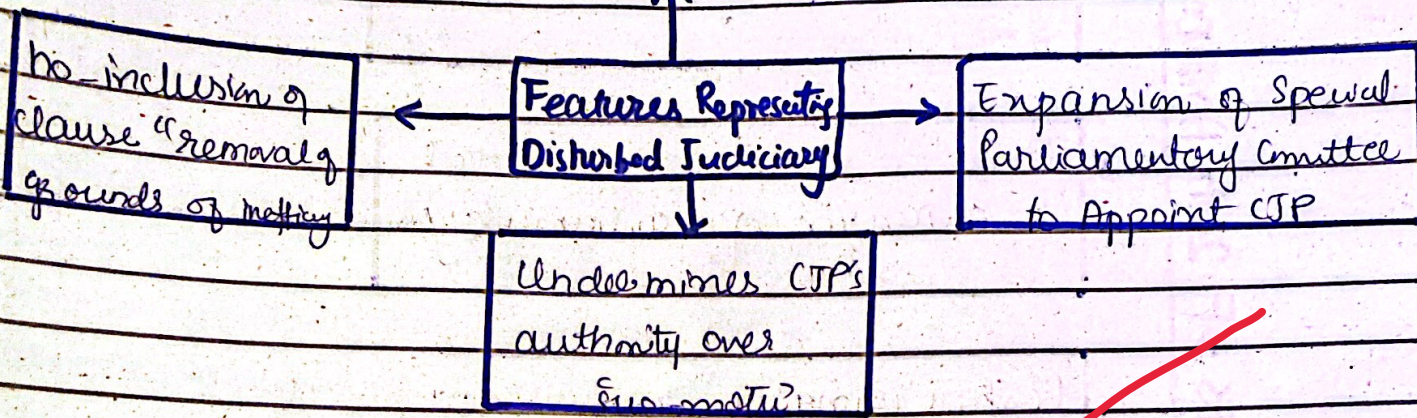 Features Representig
Disturbed Judiciary
no-inclusion of
clause "removal of
grounds of
Expansion of Special
Parliamentory Cmmittee
to Appoint CJP
Undermines CJP's
authority over
"Suo-motu"